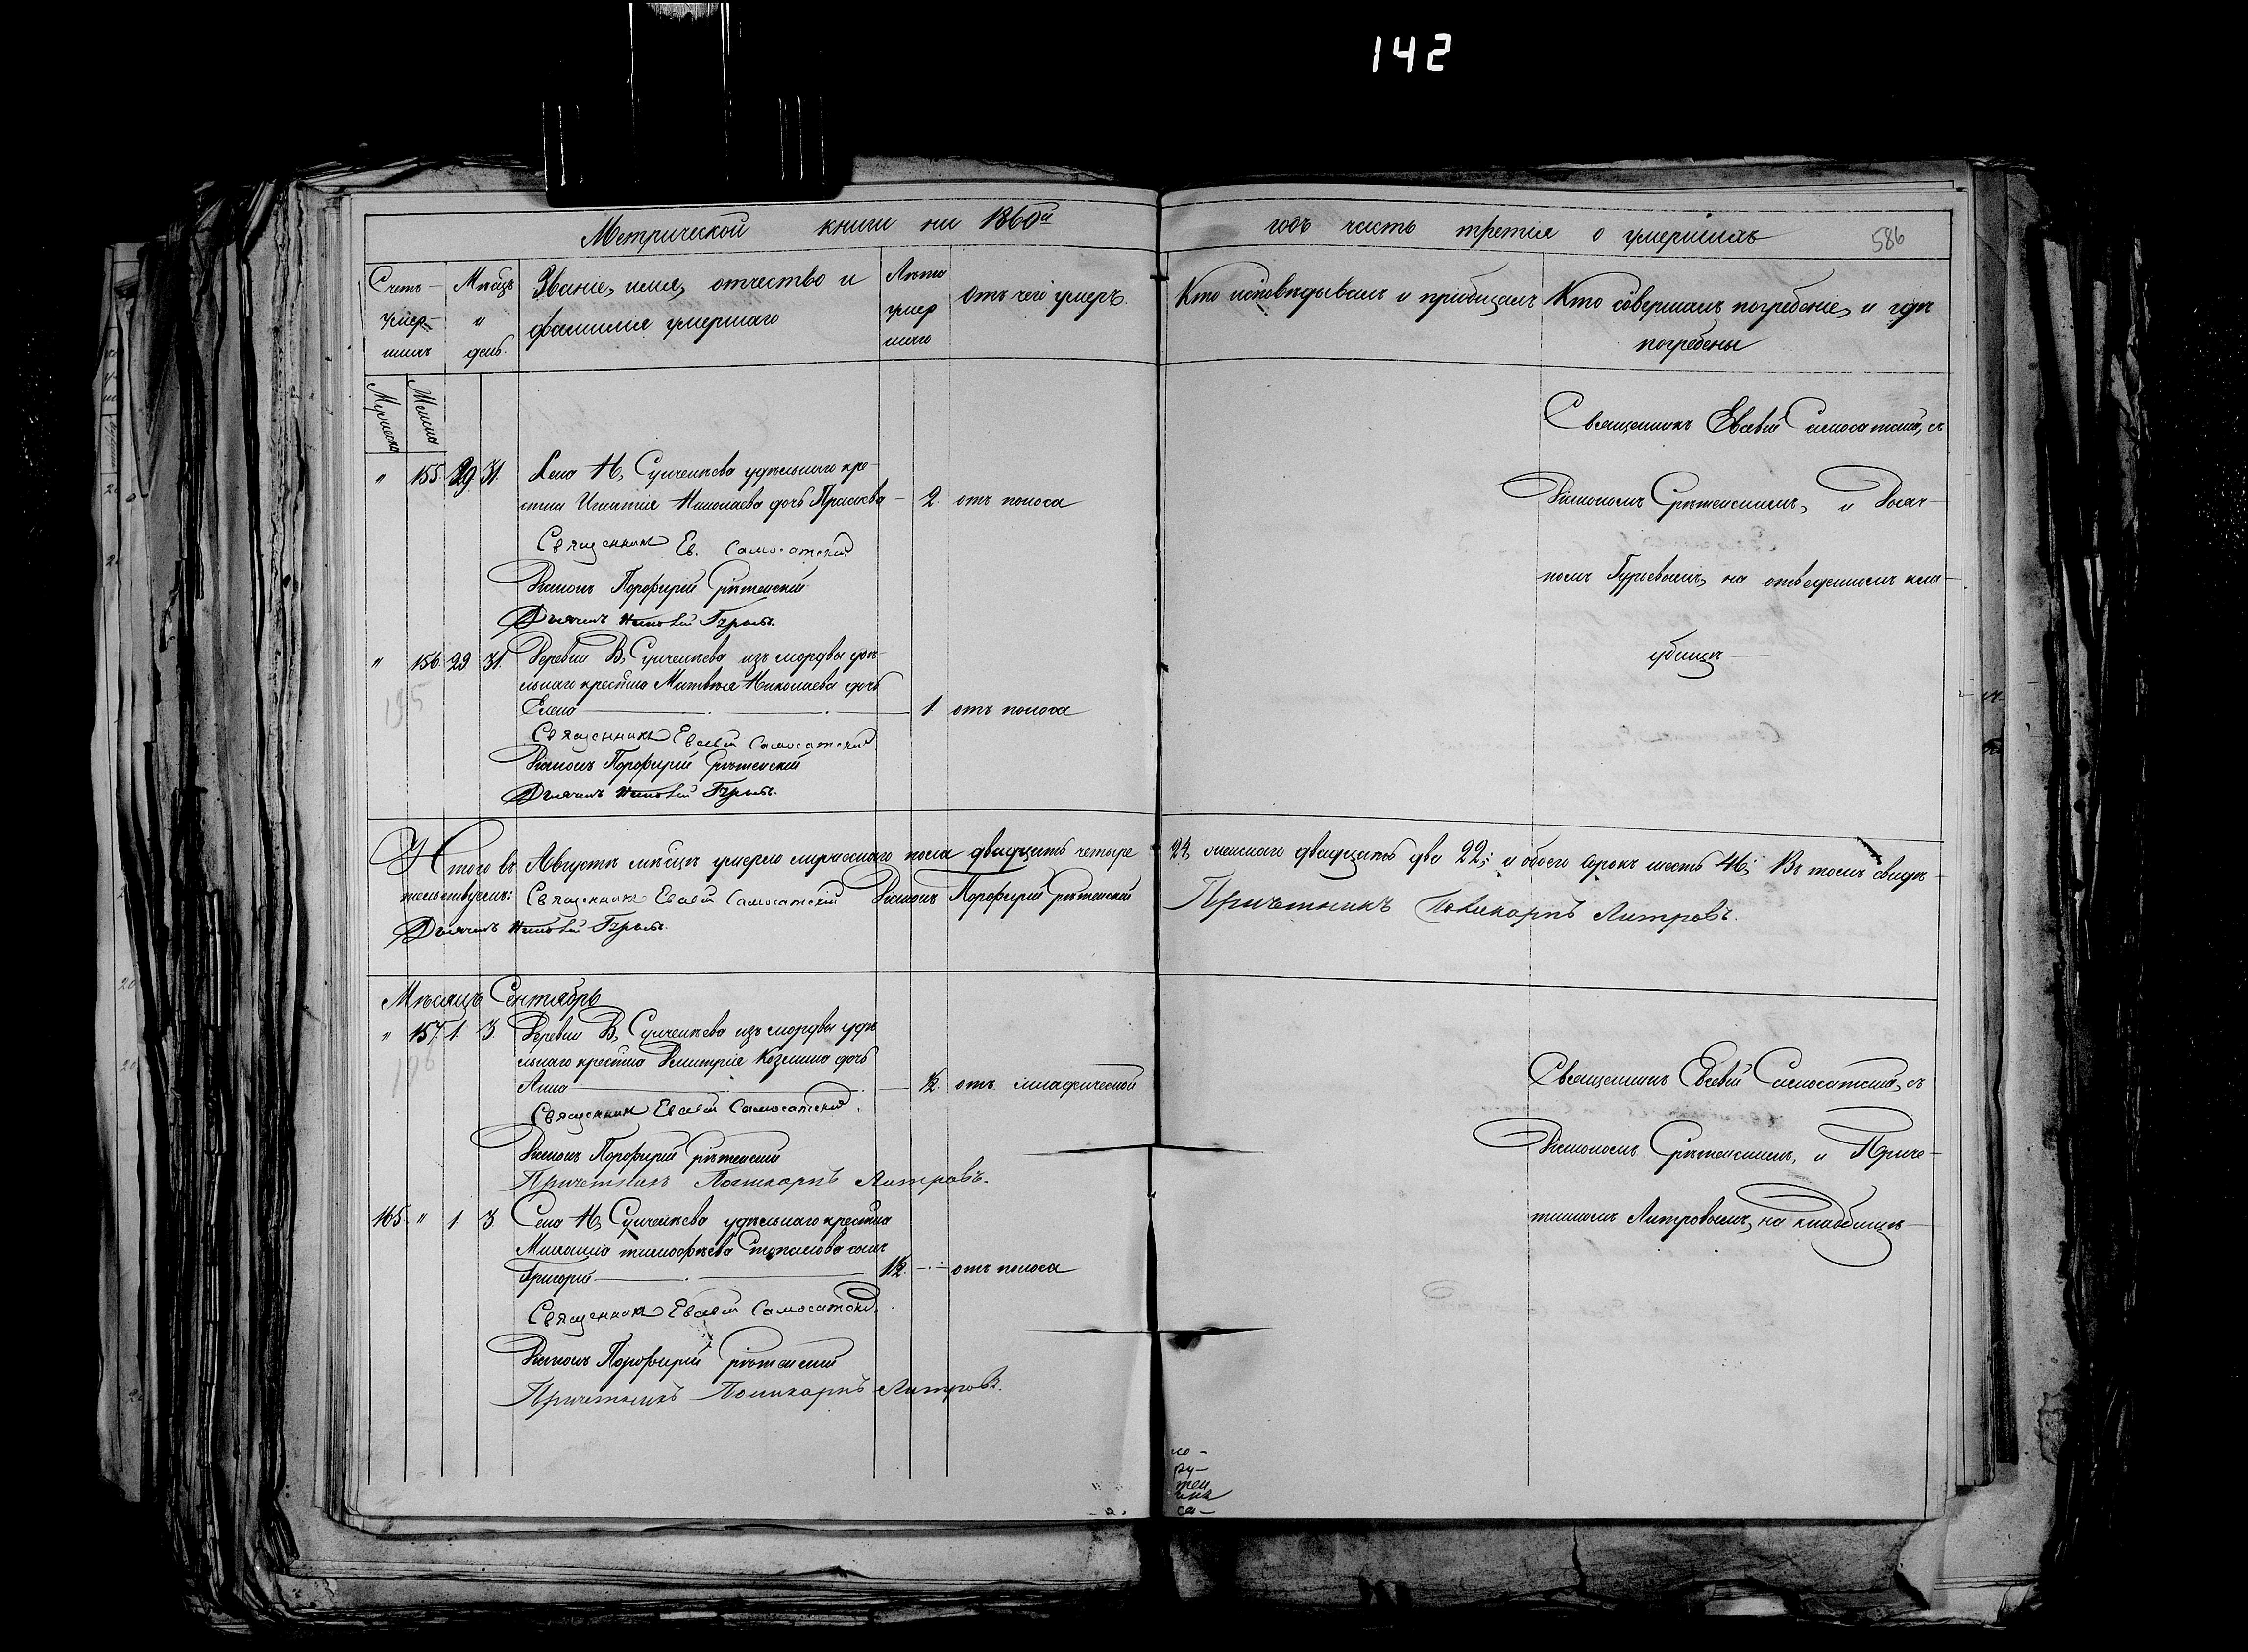 142
Метрической книги на 1860й
годъ часть третія о умершихъ
586
Счетъ умер-шихъ
Мѣсяцъ и день.
Званіе, имя, отчество и
фамилія умершаго
Лѣта умер шаго
Отъ чего умеръ.
Кто исповѣдывалъ и пріобщалъ
Кто совершалъ погребеніе, и гдѣ
погребены
Мужеска
Женска
" 155. 29. 31. Села Н, Сунчелѣева удѣльнаго кре-
стья Игнатія Николаева дочь Прасковья — 2. отъ поноса
Священникъ Ев. Самосатскій
Діаконъ Порфирій Срѣтенскій
Дьячекъ Гурьевъ.
Священникъ Евсевій Самосатскій, съ
Діакономъ Срѣтенскимъ, и Дьяч-
комъ Гурьевымъ, на отведенномъ кла-
дбищѣ —
" 156 29 31. Деревни В, Сунчелѣева изъ мордвы удѣ-
льнаго крестьяна Матвѣя Николаева дочь
Елена — 1. отъ поноса
195
Священникъ Евсевій Самосатскій
Діаконъ Порфирій Срѣтенскій
Дьячекъ Гурьевъ.
Итого въ Августѣ мѣсяцѣ умерло мужескаго пола двадцать четыре
24, женскаго двадцать два 22; и обоего сорокъ шесть 46; Въ томъ свидѣ-
тельствуемъ: Священникъ Евсевій Самосатскій Діаконъ Порфирій Срѣтенскій
Причетникъ Поликарпъ Литровъ.
Дьячекъ Гурьевъ.
Мѣсяцъ Сентябрь
" 157. 1. 3. Деревни В, Сунчелѣева изъ мордвы удѣ
льнаго крестьяна Дмитрія Козмина дочь
Анна — 1/2. отъ
196
Священникъ Евсевій Самосатскій.
Діаконъ Порфирій Срѣтенскій
Причетникъ Поликарпъ Литровъ.
Священникъ Евсевій Самосатскій, съ
Діакономъ Срѣтенскимъ, и Приче-
тникомъ Литровымъ, на кладбищѣ —
165. " 1. 3. Села Н, Сунчелѣева удѣльнаго крестьяна
Михаила Тимофѣева Степанова сынъ
Григорій — 1/2. — отъ поноса
Священникъ Евсевій Самосатскій.
Діаконъ Порфирій Срѣтенскій
Причетникъ Поликарпъ Литровъ.